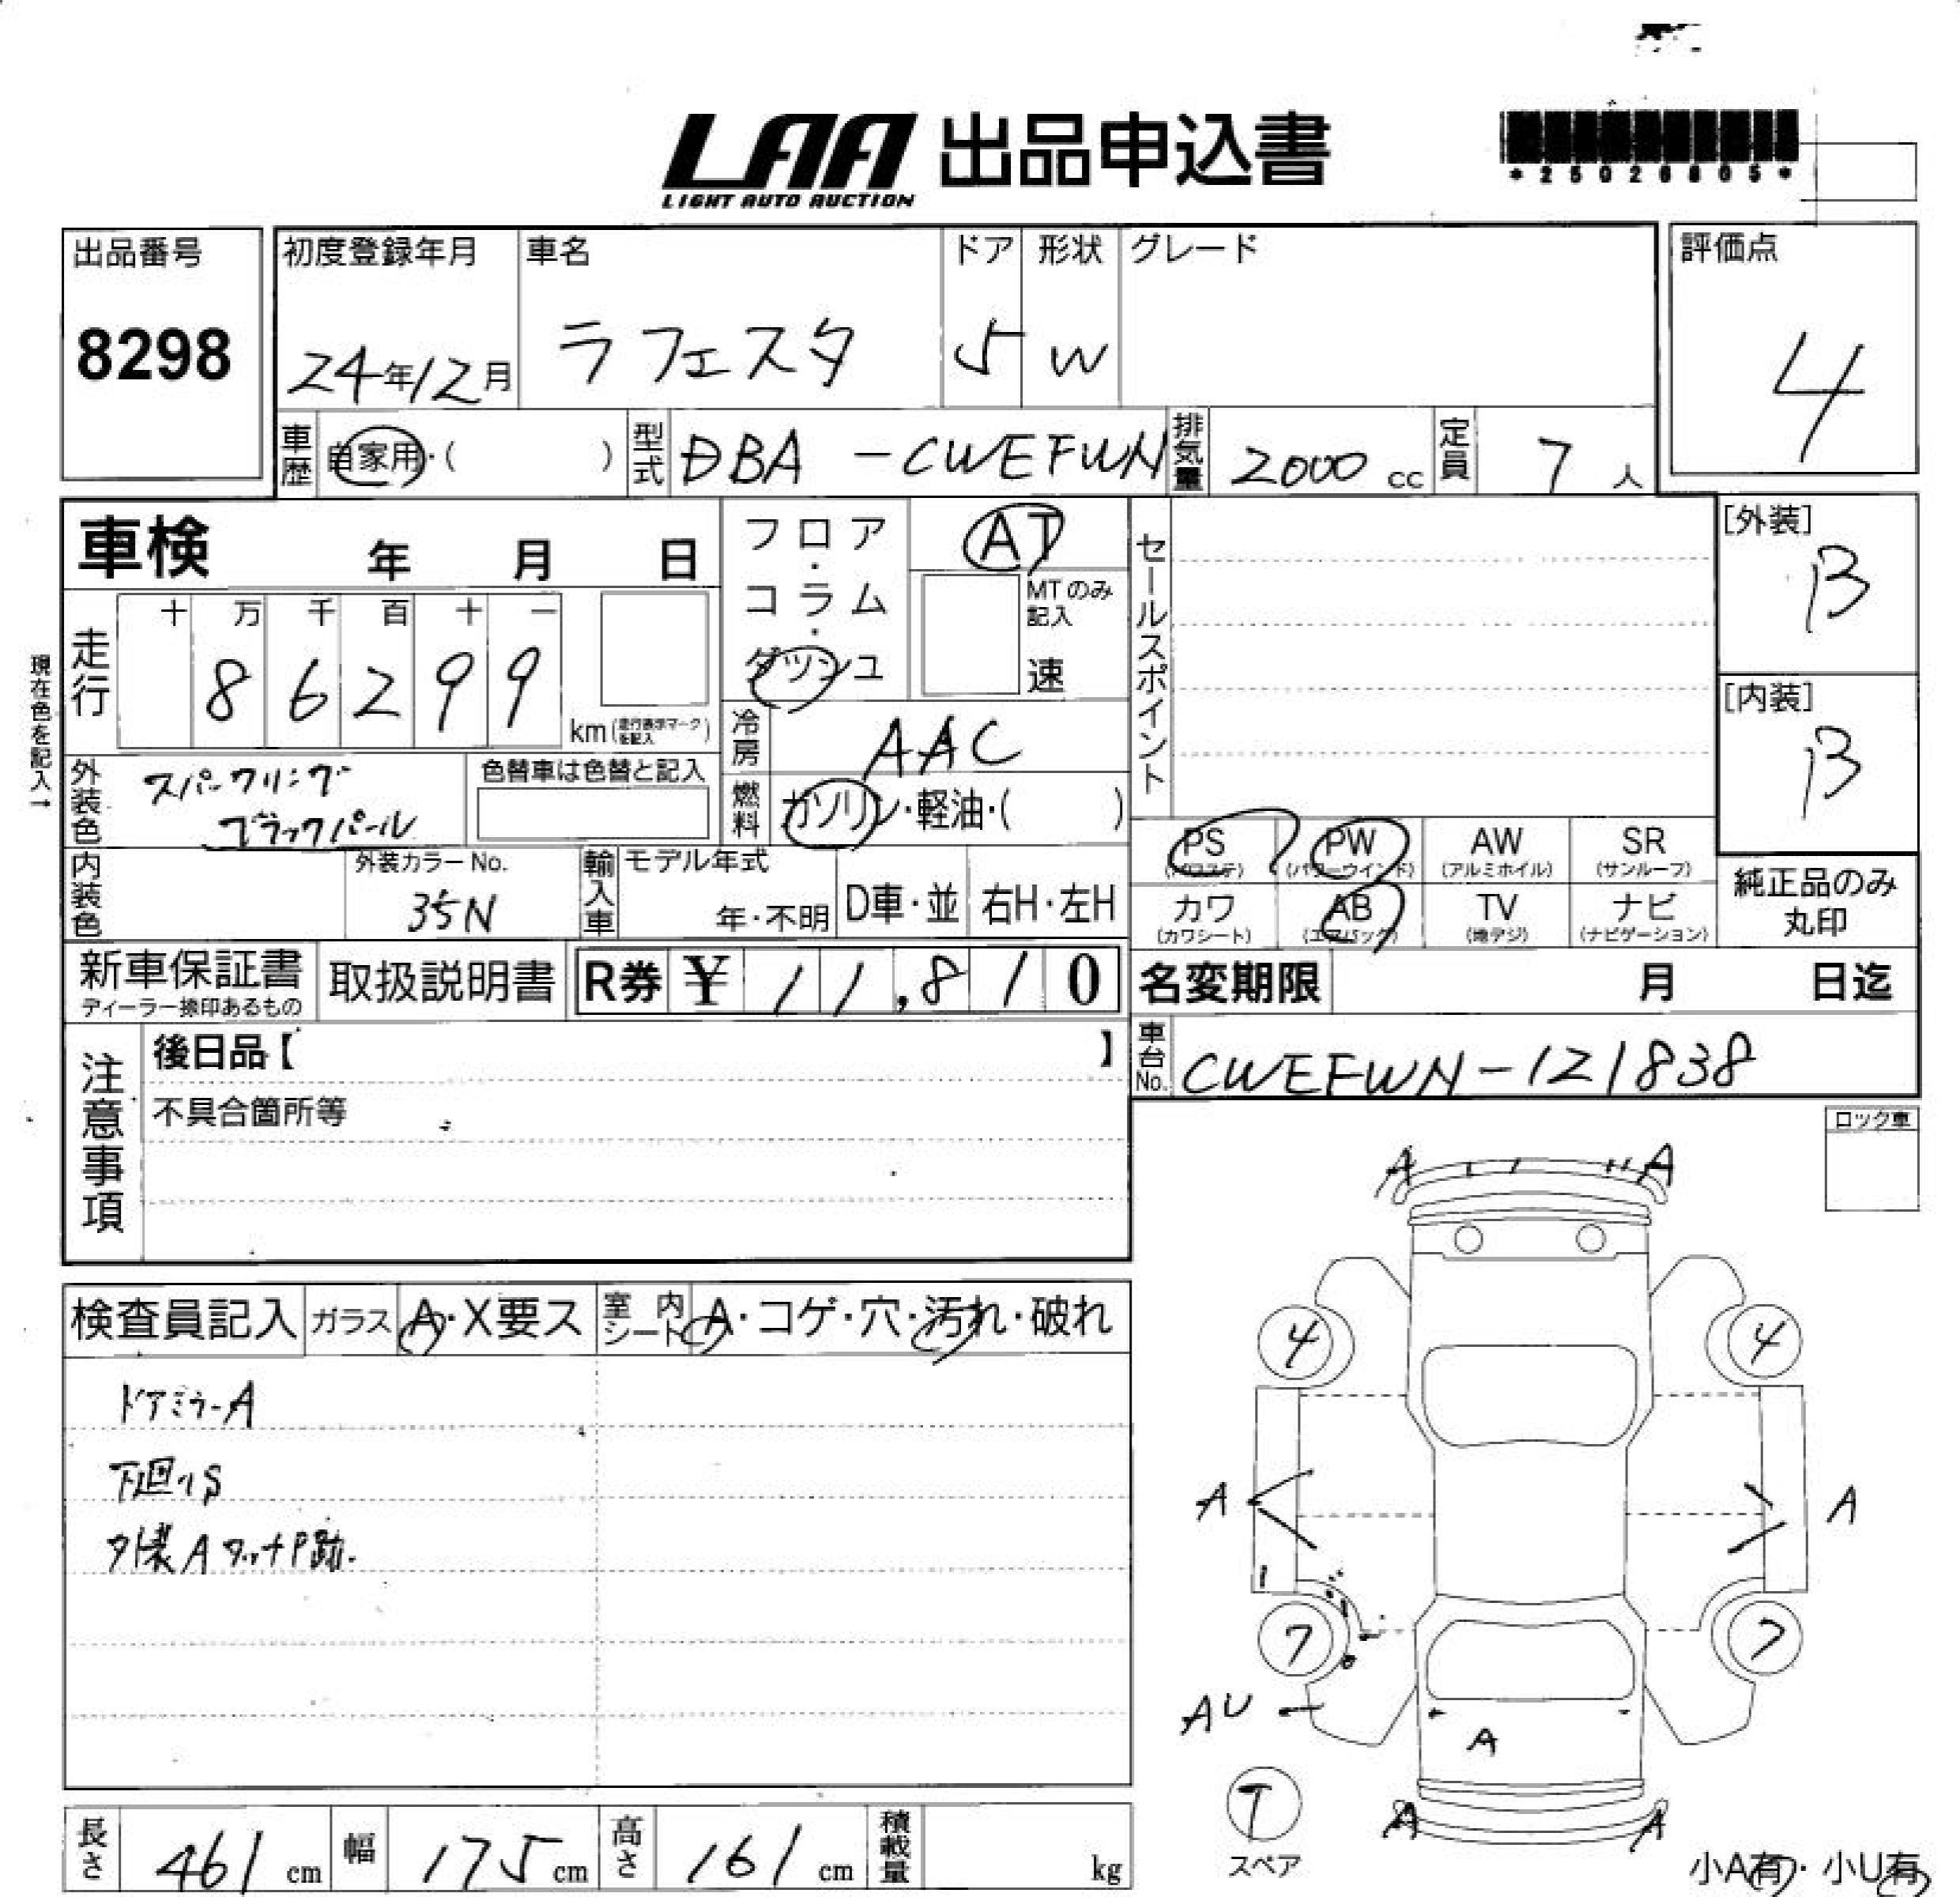 LAA 出品申込書
LIGHT AUTO AUCTION
*25026805*
出品番号
8298
初度登録年月
24年12月
車名
ラフェスタ
ドア
5
形状
W
グレード
評価点
4
車歴
自家用・( )
型式
DBA-CWEFWN
排気量
2000 cc
定員
7 人
車検 年 月 日
フロア・コラム・ダッシュ
AT
MTのみ記入
速
セールスポイント
[外装]
B
[内装]
B
現在色を記入→
走行
十 万 千 百 十 一
8 6 2 9 9
km(走行表示マークを記入)
冷房
AAC
外装色
スパークリング
ブラックパール
色替車は色替と記入
燃料
ガソリン・軽油・( )
PS (パワステ)
PW (パワーウインド)
AW (アルミホイル)
SR (サンルーフ)
カワ (カワシート)
AB (エアバック)
TV (地デジ)
ナビ (ナビゲーション)
純正品のみ
丸印
内装色
外装カラーNo.
35N
輸入車
モデル年式
年・不明
D車・並
右H・左H
新車保証書
ディーラー捺印あるもの
取扱説明書
R券 ¥ 11,810
名変期限 月 日迄
注意事項
後日品【 】
不具合箇所等
車台No.
CWEFWN-121838
ロック車
検査員記入
ガラス
A・X要ス
室内シート
A・コゲ・穴・汚れ・破れ
ドアミラーA
下廻りS
外装AタッチP跡.
A A
4 4
A A
7 7
AU
A
T
スペア
A A
小A有・小U有
長さ 461 cm
幅 175 cm
高さ 161 cm
積載量 kg